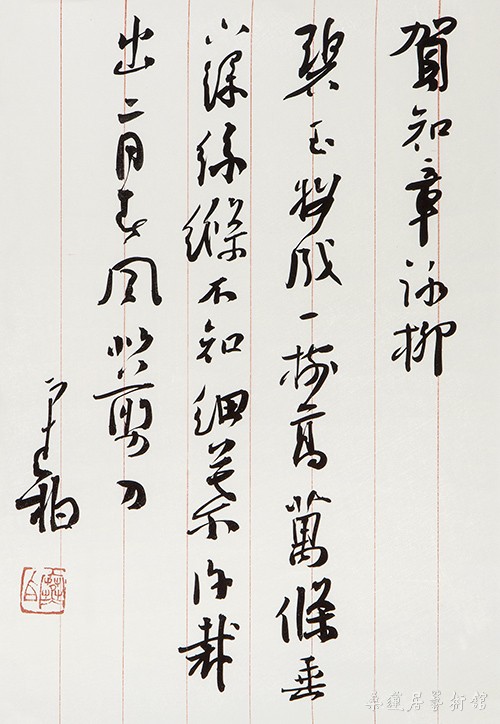 賀知章詠柳
碧玉妝成一樹高萬條垂
下綠絲縧不知細葉誰裁
出二月春風似剪刀
桑蓮居藝術館